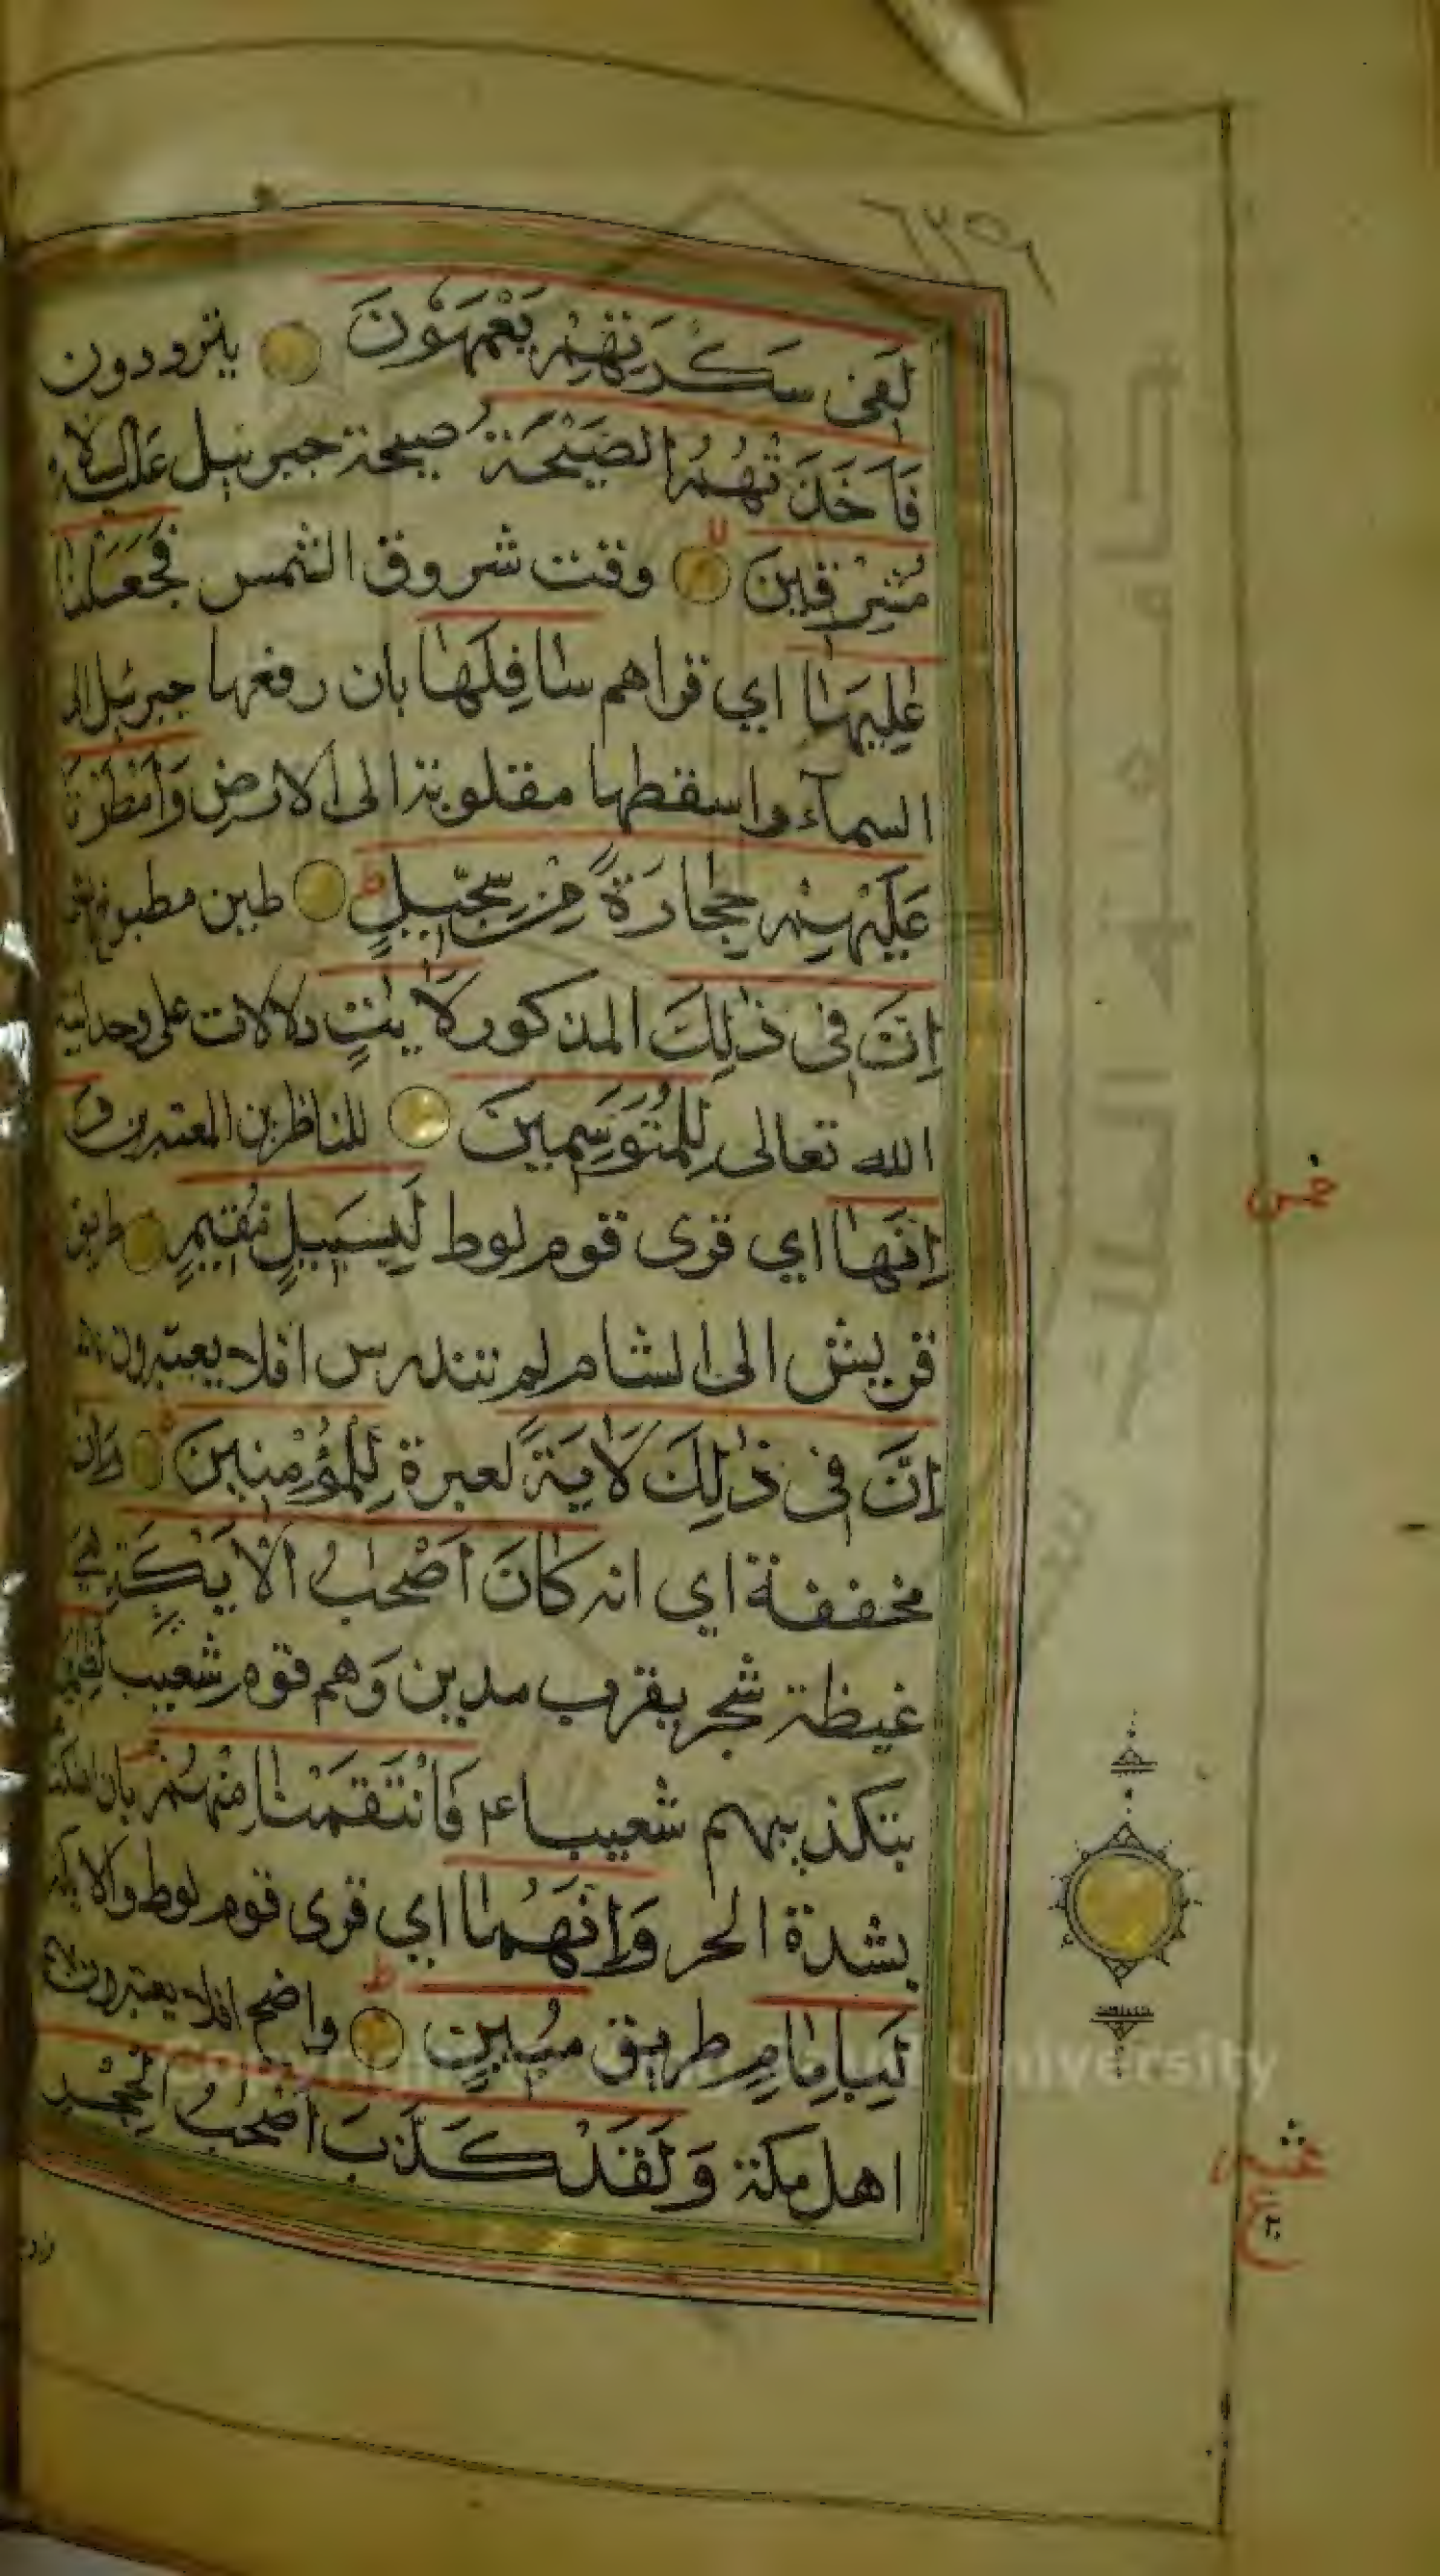 ٦٢٥٦
لَفِى سَكْرَتِهِمْ يَعْمَهُونَ يترددون
فَاَخَذَتْهُمُ الصَّيْحَةُ صيحة جبرئيل عليه السلام
مُشْرِقِينَ وقت شروق الشمس فَجَعَلْنَا
عٰلِيَهَا اي قراهم سَافِلَهَا بان رفعها جبرئيل الى
السمآء واسقطها مقلوبة الى الارض وَاَمْطَرْنَا
عَلَيْهِمْ حِجَارَةً مِنْ سِجِّيلٍ طين مطبوخ
اِنَّ فِى ذٰلِكَ المذكور لَاٰيٰتٍ دلالات على وحدانية
الله تعالى لِلْمُتَوَسِّمِينَ للناظرين المعتبرين
اِنَّهَا اي قرى قوم لوط لَبِسَبِيلٍ مُقِيمٍ طريق
قريش الى الشام لم تندرس افلا يعتبرون
اِنَّ فِى ذٰلِكَ لَاٰيَةً لعبرة لِلْمُؤْمِنِينَ وَاِن
مخففة اي انه كَانَ اَصْحٰبُ الْاَيْكَةِ هي
غيظة شجر بقرب مدين وَهم قوم شعيب لَظٰلِمِينَ
بتكذيبهم شعيبا ع م فَانْتَقَمْنَا مِنْهُمْ بان اهلكناهم
بشدة الحر وَاِنَّهُمَا اي قرى قوم لوط والايكة
لَبِاِمَامٍ طريق مُبِينٍ واضح افلا يعتبرون
اهل مكة وَلَقَدْ كَذَّبَ اَصْحٰبُ الْحِجْرِ
خمس
عشر
ع
Copyright University